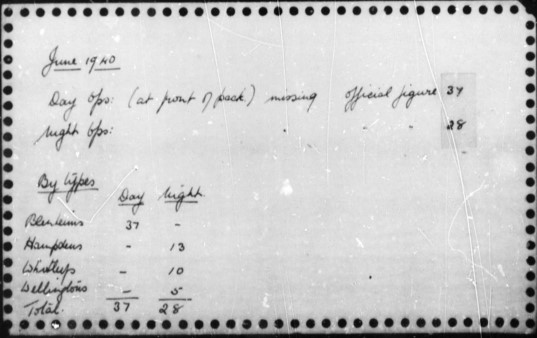 June 1940
Day Ops: (at front of pack) missing official figure 37
Night Ops: " " " 28
By types
Day Night
Blenheims 37 -
Hampdens - 13
Whitleys - 10
Wellingtons - 5
Total. 37 28